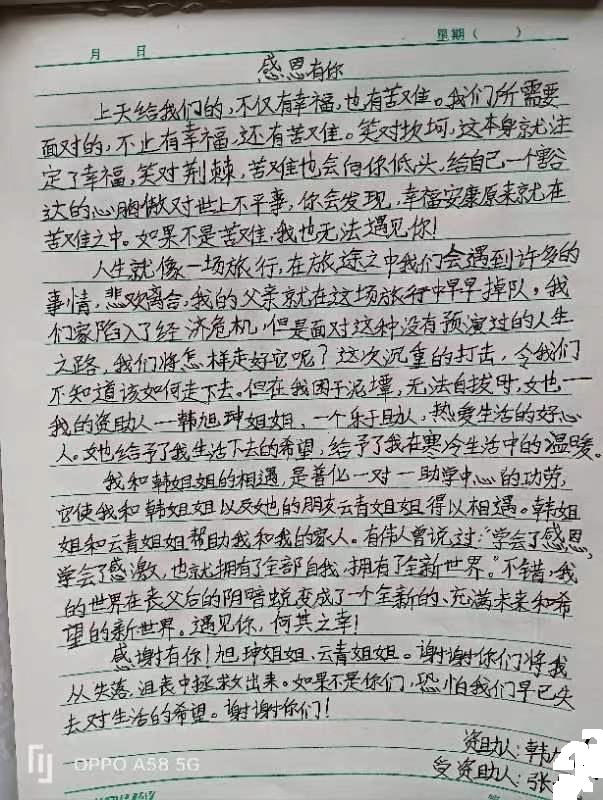 月 日 星期( )
感恩有你
上天给我们的,不仅有幸福,也有苦难。我们所需要
面对的,不止有幸福,还有苦难。笑对坎坷,这本身就注
定了幸福,笑对荆棘,苦难也会向你低头,给自己一个豁
达的心胸傲对世上不平事,你会发现,幸福安康原来就在
苦难之中。如果不是苦难,我也无法遇见你!
人生就像一场旅行,在旅途之中我们会遇到许多的
事情,悲欢离合,我的父亲就在这场旅行中早早掉队。我
们家陷入了经济危机,但是面对这种没有预演过的人生
之路,我们将怎样走好它呢?这次沉重的打击,令我们
不知道该如何走下去。但在我困于泥潭,无法自拔时,她也一一
我的资助人一韩旭珅姐姐,一个乐于助人,热爱生活的好心
人。她也给予了我生活下去的希望,给予了我在寒冷生活中的温暖。
我和韩姐姐的相遇,是善化一对一助学中心的功劳,
它使我和韩姐姐以及她的朋友云青姐姐得以相遇。韩姐
姐和云青姐姐帮助我和我的家人。有伟人曾说过:“学会了感恩,
学会了感激,也就拥有了全部自我,拥有了全新世界。”不错,我
的世界在丧父后的阴暗蜕变成了一个全新的、充满未来和希
望的新世界。遇见你,何其之幸!
感谢有你!旭珅姐姐、云青姐姐。谢谢你们将我
从失落,沮丧中拯救出来。如果不是你们,恐怕我们早已失
去对生活的希望。谢谢你们!
资助人:韩
受资助人:张
OPPO A58 5G